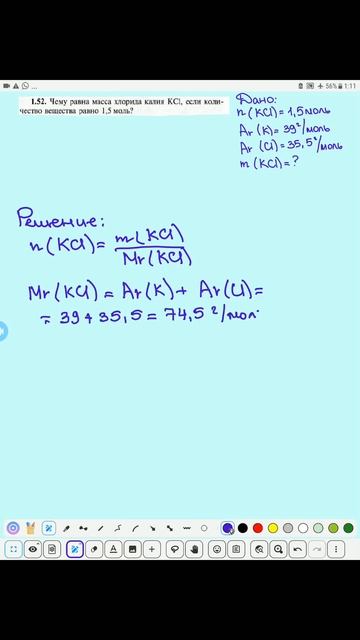 56% 1:11
1.52. Чему равна масса хлорида калия KCl, если коли-
чество вещества равно 1,5 моль?
Дано:
n(KCl)=1,5моль
Ar(K)=39г/моль
Ar(Cl)=35,5г/моль
m(KCl)=?
Решение:
n(KCl)= m(KCl)
Mr(KCl)
Mr(KCl)=Ar(K)+ Ar(Cl)=
=39+35,5=74,5г/мол.